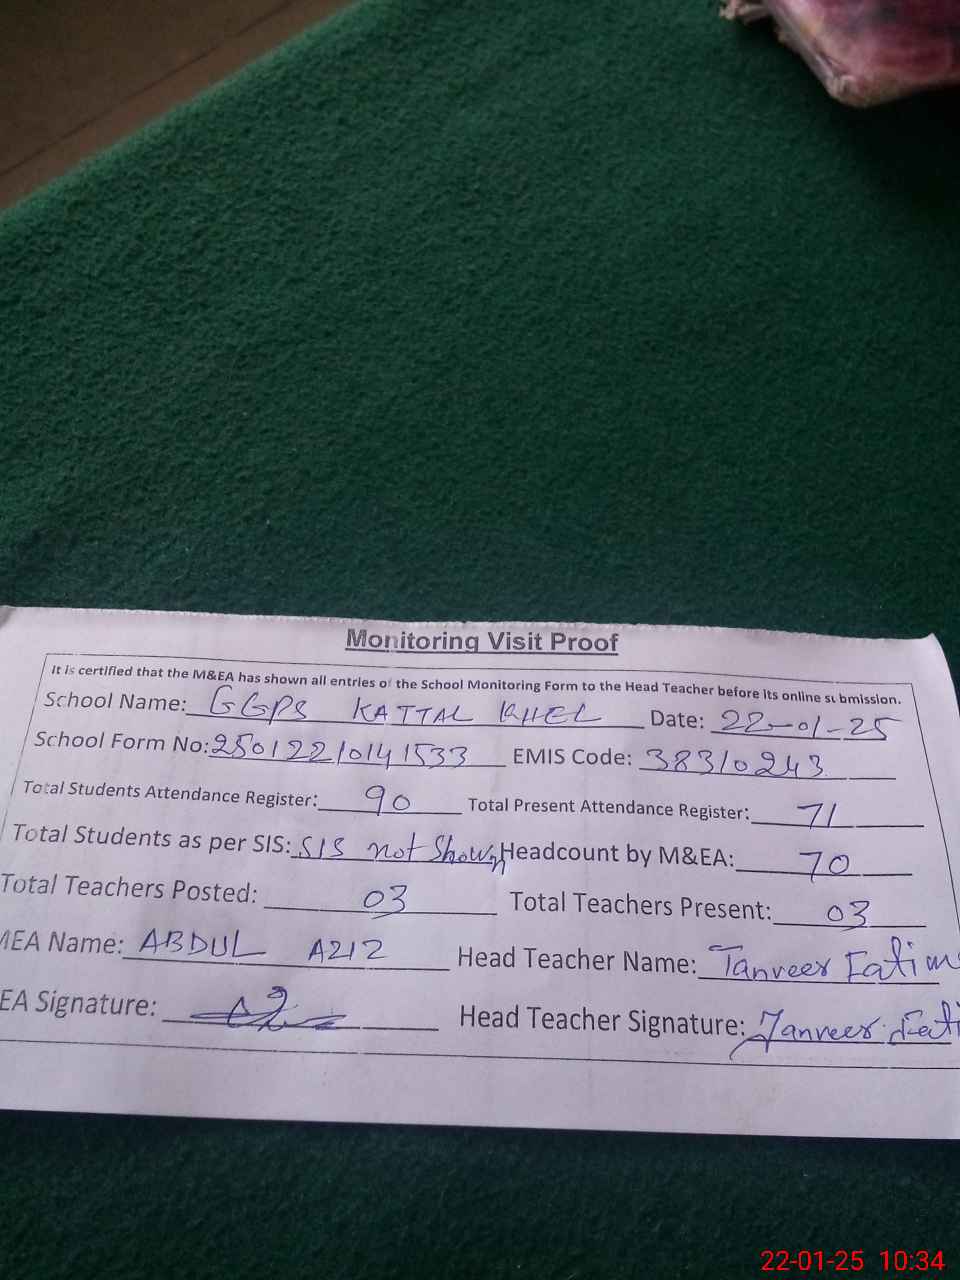 Monitoring Visit Proof
It is certified that the M&EA has shown all entries of the School Monitoring Form to the Head Teacher before its online submission.
School Name: GGPS KATTAL KHEL Date: 22-01-25
School Form No: 25012210141533 EMIS Code: 38310243
Total Students Attendance Register: 90 Total Present Attendance Register: 71
Total Students as per SIS: SIS not Shown Headcount by M&EA: 70
Total Teachers Posted: 03 Total Teachers Present: 03
MEA Name: ABDUL AZIZ Head Teacher Name: Tanveer Fatim
EA Signature: Head Teacher Signature: Tanveer Fati
22-01-25 10:34